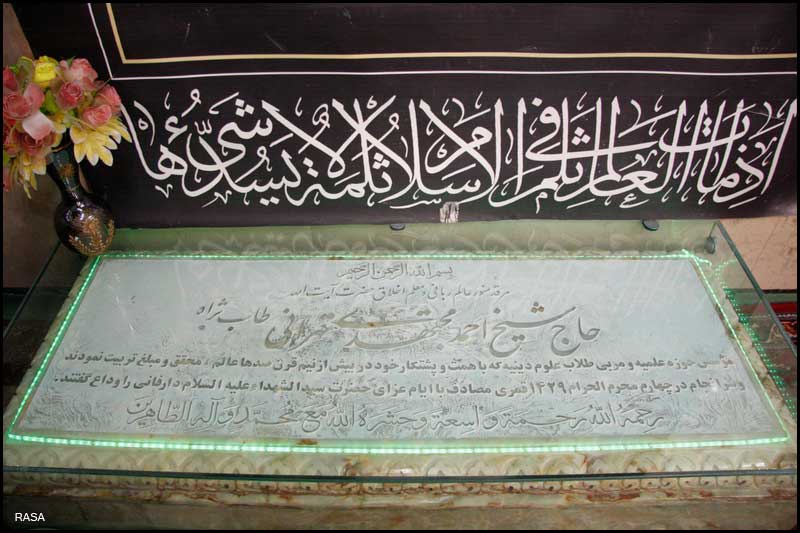 اذا مات العالم ثلم فی الاسلام ثلمة لا یسدها شیء
بسم الله الرحمن الرحیم
مرقد منور عالم ربانی و معلم اخلاق حضرت آیت الله
حاج شیخ احمد مجتهدی تهرانی طاب ثراه
مؤسس حوزه علمیه و مربی طلاب علوم دینیه که با همت و پشتکار خود در بیش از نیم قرن صدها عالم، محقق و مبلغ تربیت نمودند
و سرانجام در چهارم محرم الحرام ۱۴۲۹ قمری مصادف با ایام عزای حضرت سید الشهداء علیه السلام دار فانی را وداع گفتند.
رحمة الله رحمة واسعة و حشره الله مع محمد و آله الطاهرین
RASA